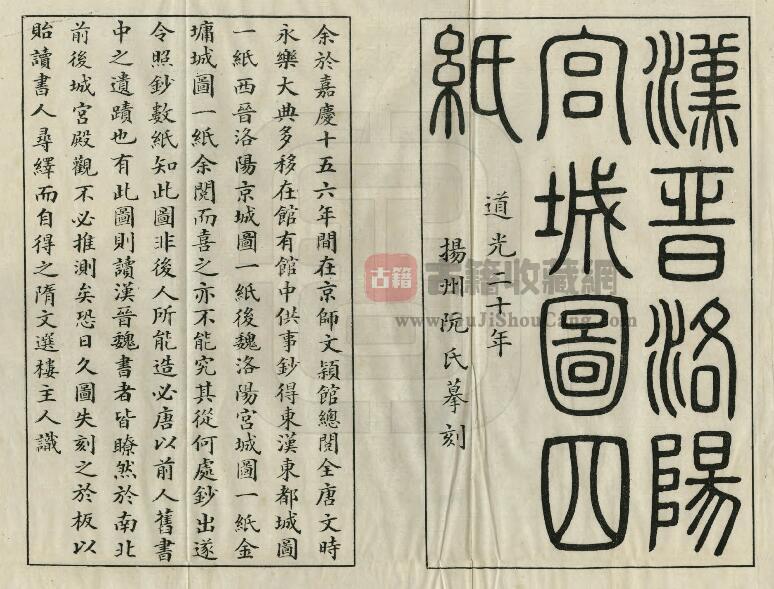 漢晉洛陽
宮城圖四
紙
道光二十年
揚州阮氏摹刻
余於嘉慶十五六年間在京師文頴館總閱全唐文時
永樂大典多移在館有館中供事鈔得東漢東都城圖
一紙西晉洛陽京城圖一紙後魏洛陽宮城圖一紙金
墉城圖一紙余閱而喜之亦不能究其從何處鈔出遂
令照鈔數紙知此圖非後人所能造必唐以前人舊書
中之遺蹟也有此圖則讀漢晉魏書者皆瞭然於南北
前後城宮殿觀不必推測矣恐日久圖失刻之於板以
貽讀書人尋繹而自得之隋文選樓主人識
古籍
古籍收藏網
www.GuJiShouCang.com